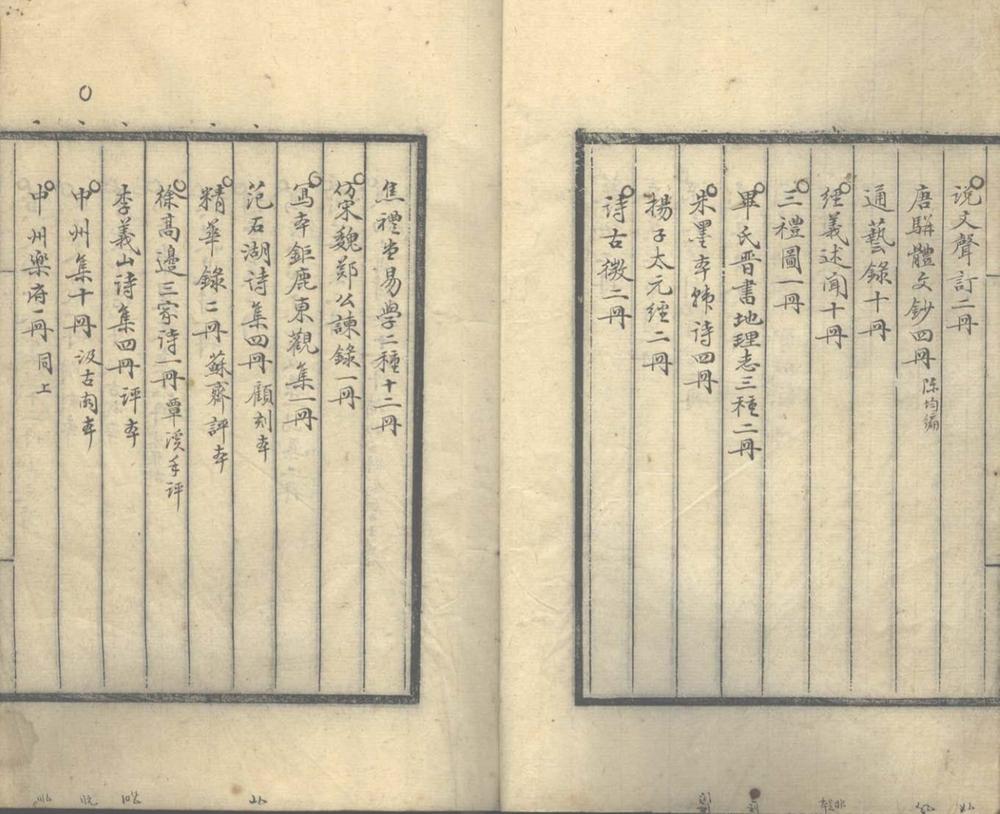 说文聲訂二冊
唐駢體文鈔四冊 陈均编
通藝錄十冊
经義述闻十冊
三禮圖一冊
畢氏晋書地理志三種二冊
朱墨本韩诗四冊
揚子太元经二冊
诗古微二冊
焦禮堂易学二種十二冊
仿宋魏郑公諫錄一冊
写本鉅鹿東觀集一冊
范石湖诗集四冊 顧刻本
精華錄二冊 蘇齋評本
徐高邉三家诗一冊 覃溪手评
李義山诗集四冊 评本
中州集十冊 汲古阁本
中州樂府一冊 同上